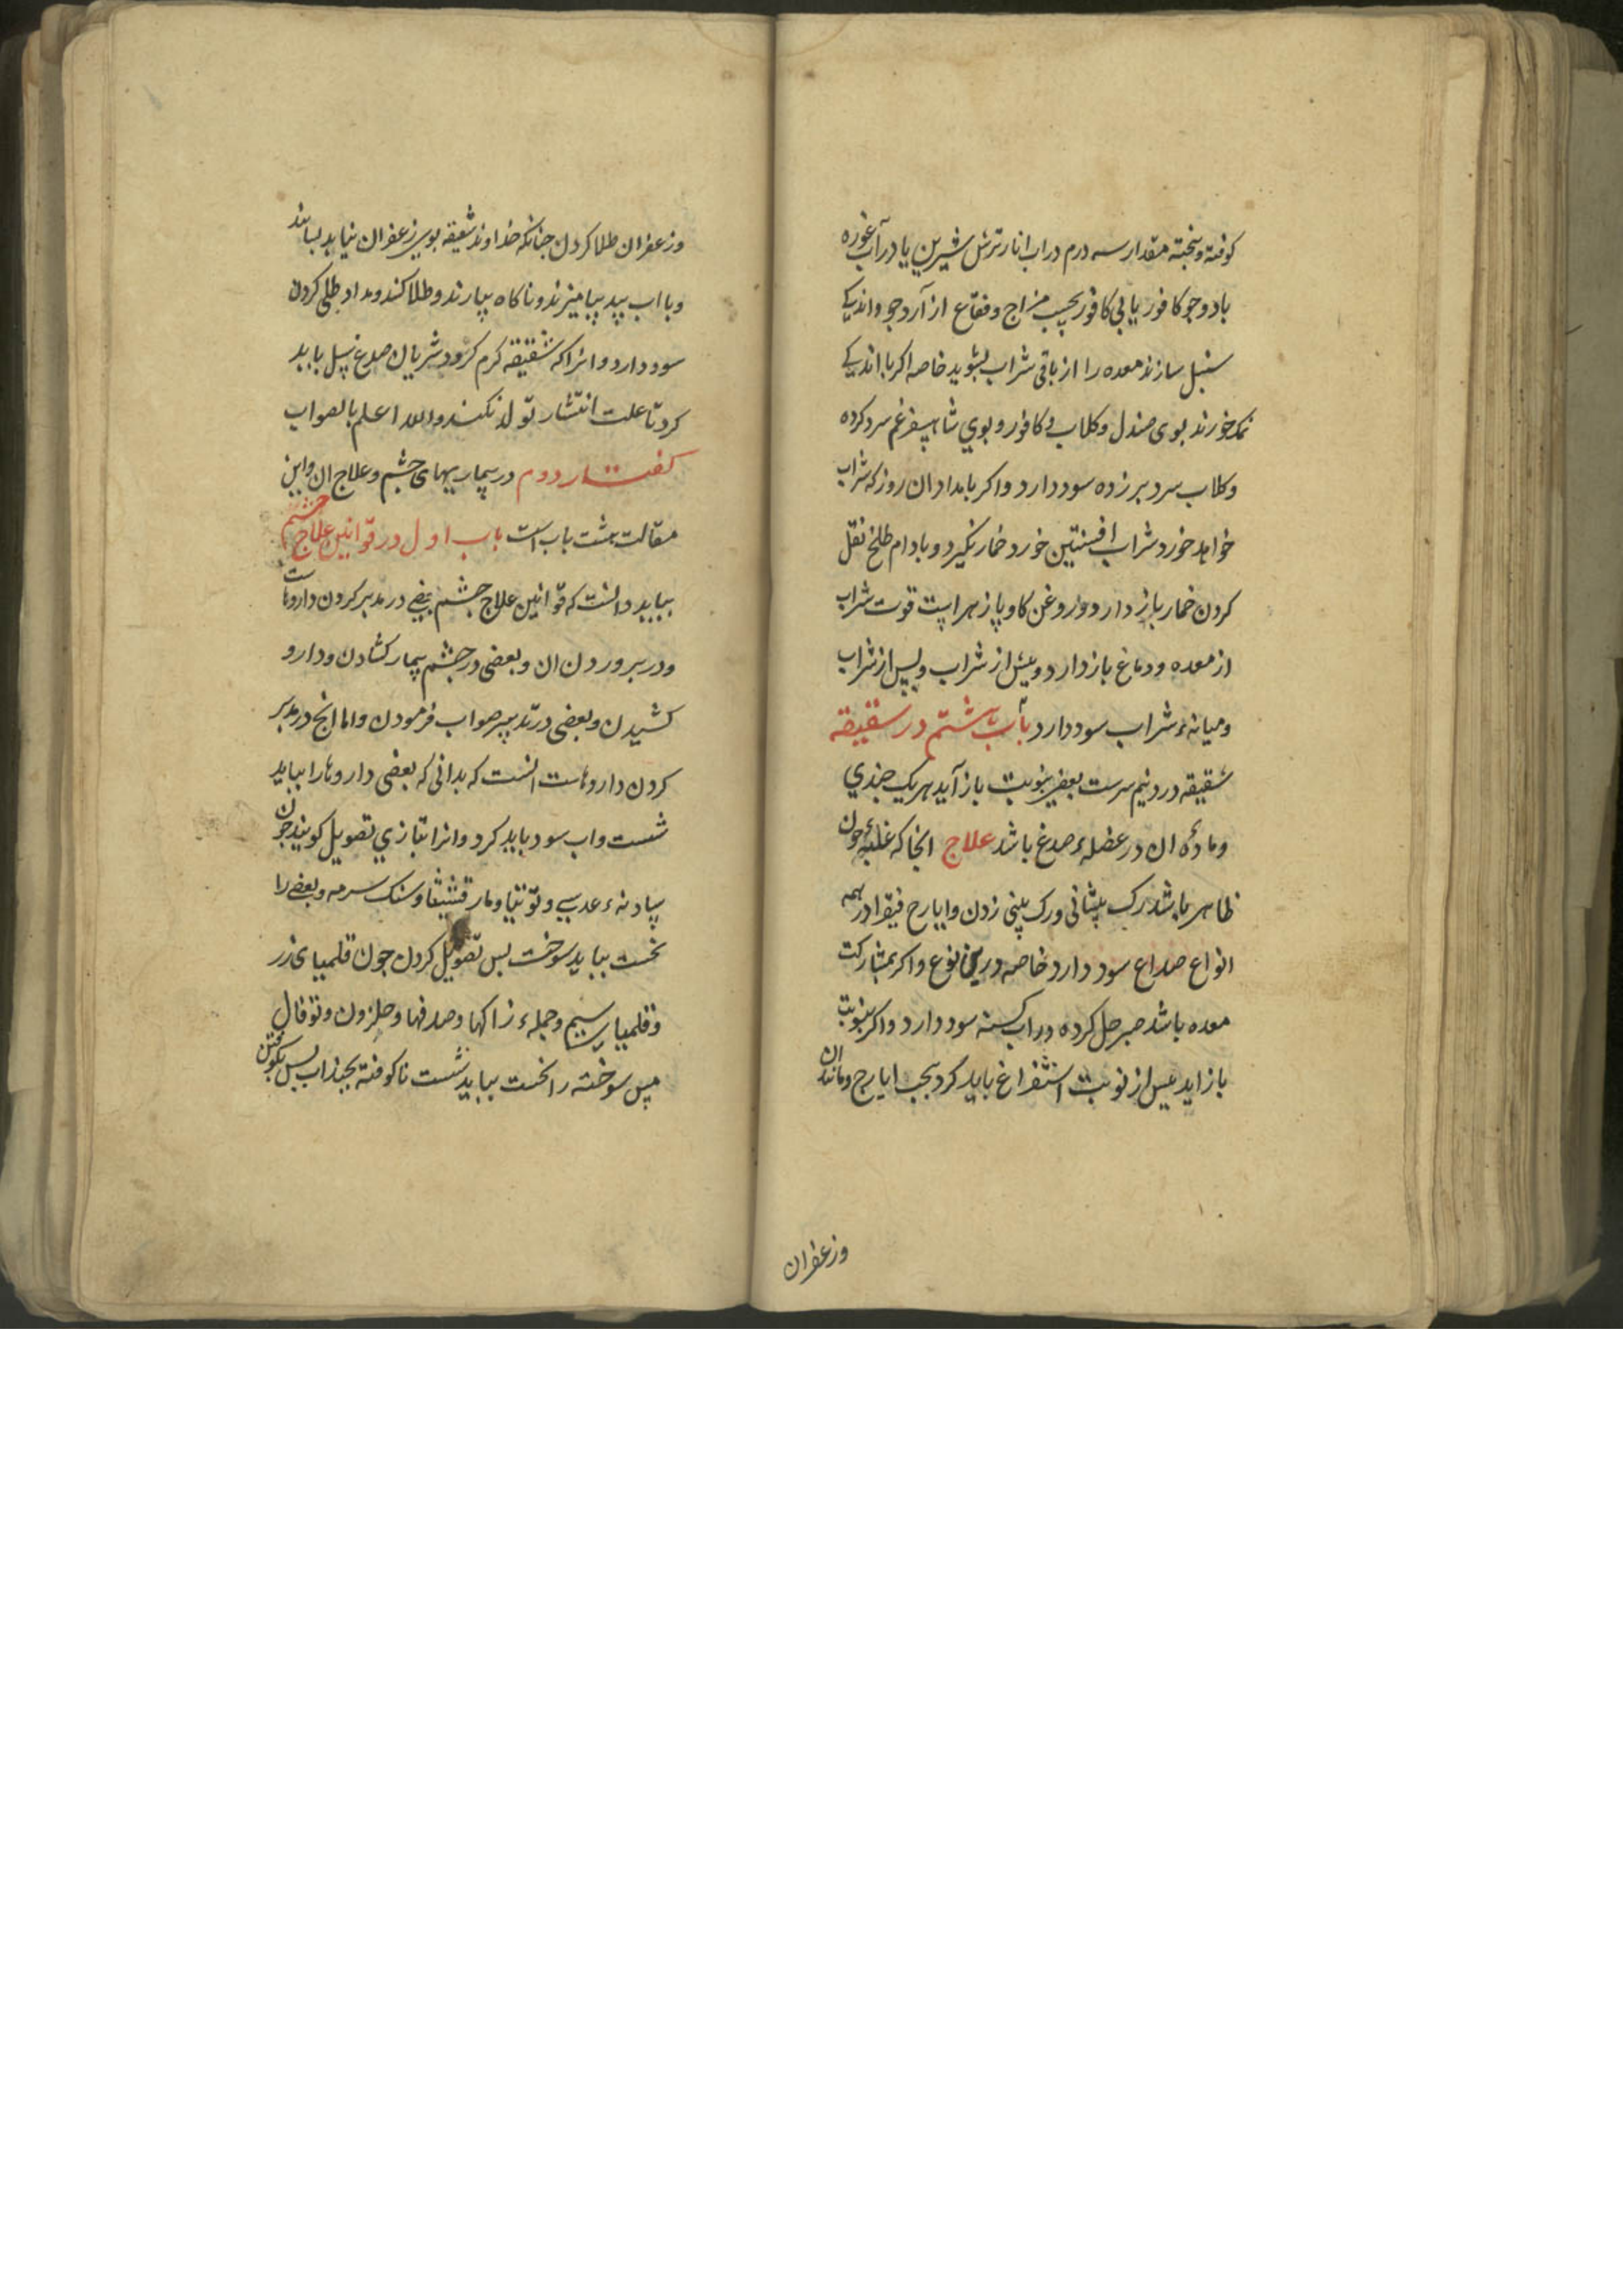 کوفته و پخته مقدار سه درم در اب انار ترش شیرین یا در آب غوره
با دو جو کافور یا بی کافور بحسب مزاج و فقاع از آرد جو و اندیکے
سنبل سازند معده را از باقی شراب بشوید خاصه اکر با اندیکے
نمک خورند بوی صندل و کلاب و کافور و بوی شاهسپرغم سرد کرده
و کلاب سرد بر زده سود دارد و اکر بامداد ان روز که شراب
خواهد خورد شراب افسنتین خورد خمار نکیرد و بادام طلخ نقل
کردن خمار باز دارد و دوغن کاو پازهراست قوت شراب
از معده و دماغ باز دارد و پیش از شراب و پس از شراب
و میانهٔ شراب سود دارد باب هشتم در شقیقه
شقیقه درد نیم سرست بعضی بنوبت باز آید هر یک چندي
و مادهٔ ان در عضلهٔ صدغ باشد علاج انجا که غلبهٔ خون
ظاهر باشد رک پیشانی و رک بینی زدن و ایارج فیقرا در همه
انواع صداع سود دارد خاصه درین نوع و اکر بمشارکت
معده باشد صبر حل کرده در اب کسنه سود دارد و اکر بنوبت
باز اید پیش از نوبت استفراغ باید کرد بحب ایارج و مانند ان
وزعفران
وزعفران طلا کردن جنانکه خداوند شقیقه بوی زعفران نیابد بسایند
و با اب بید بیامیزند و ناکاه بیارند و طلا کنند و مداد طلی کردن
سود دارد و انرا که شقیقه کرم کرود شریان صدغ سل باید
کرد تا علت انتشار تولد نکند والله اعلم بالصواب
کفتار دوم در بیماریهای چشم و علاج ان و این
مقالت هشت باب است باب اول در قوانین علاج چشم
بباید دانست که قوانین علاج چشم بعضی در مدبر کردن داروهاست
و در پروردن ان و بعضی در چشم بیمار کشادن و دارو
کشیدن و بعضی در تدبیر صواب فرمودن و اما انج در مدبر
کردن داروهاست انست که بدانی که بعضی داروها را بباید
شست و اب سود باید کرد و انرا بتازي تصویل کویند جون
شادنهٔ عدسی و توتیا و مارقشیشا و سنک سرمه و بعضی را
نخست بباید سوخت بس تصویل کردن جون قلمیای زر
و قلمیا سیم و جملهٔ زاکها و صدفها و حلزون و توفال
مس سوخته را نخست بباید شست ناکوفته بجند اب پس بکوفتن